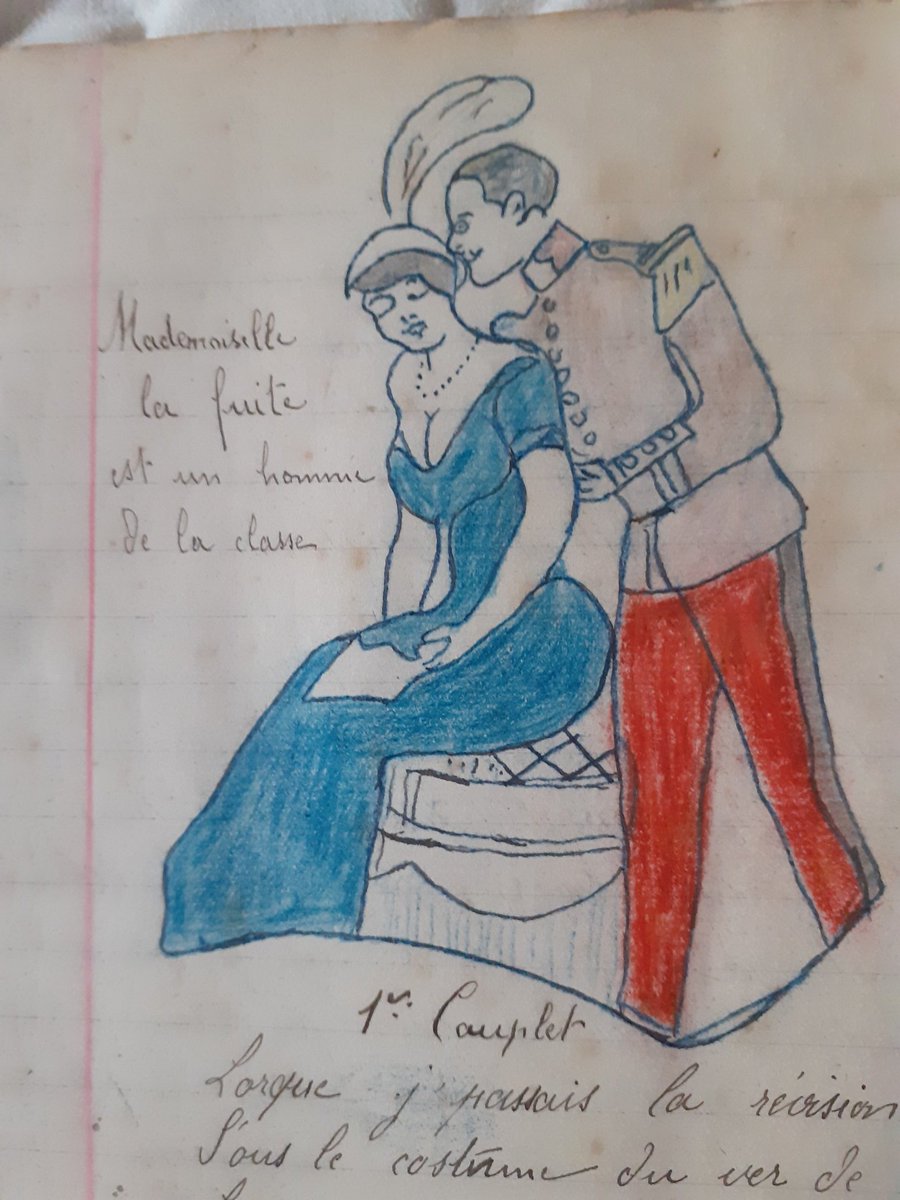 Mademoiselle
la fuite
est un homme
de la classe
1er Couplet
Lorque j'passais la révision
Sous le costume du ver de